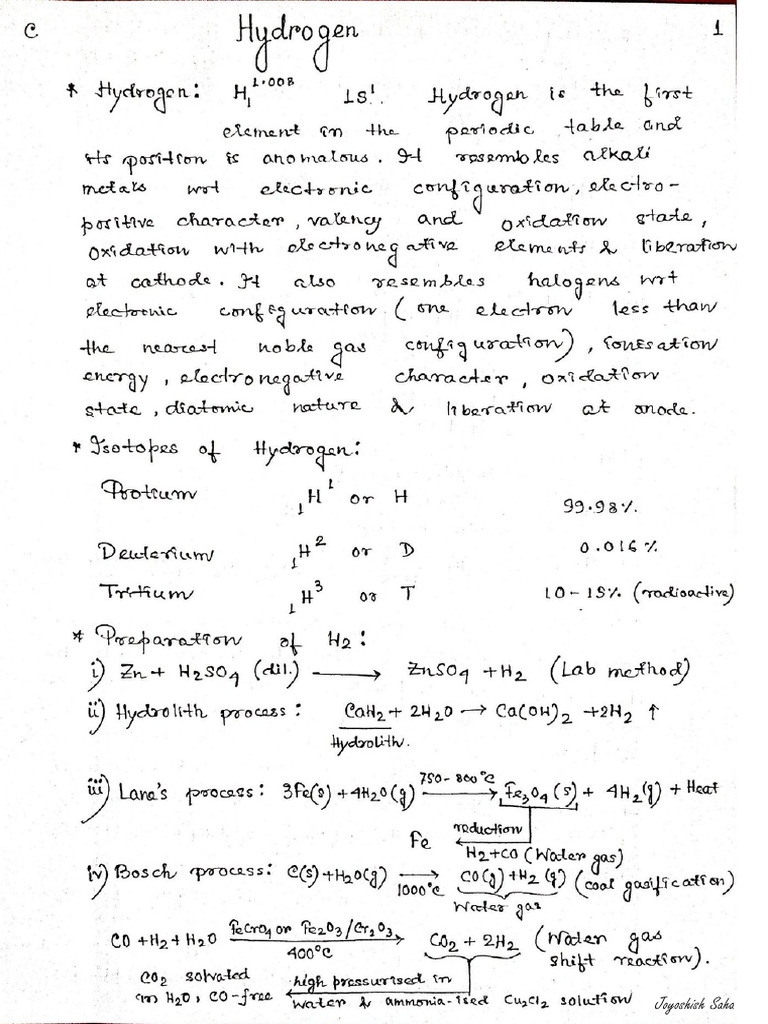 C Hydrogen 1
* Hydrogen: H₁^1.008 1S¹. Hydrogen is the first
element in the periodic table and
its position is anomalous. It resembles alkali
metals wrt electronic configuration, electro-
positive character, valency and oxidation state,
oxidation with electronegative elements & liberation
at cathode. It also resembles halogens wrt
electronic configuration (one electron less than
the nearest noble gas configuration), ionisation
energy, electronegative character, oxidation
state, diatomic nature & liberation at anode.
* Isotopes of Hydrogen:
Protium ₁H¹ or H 99.98%.
Deuterium ₁H² or D 0.016%
Tritium ₁H³ or T 10-15% (radioactive)
* Preparation of H2:
i) Zn + H2SO4 (dil.) ⟶ ZnSO4 + H2 (Lab method)
ii) Hydrolith process: CaH2 + 2H2O → Ca(OH)2 + 2H2 ↑
Hydrolith.
750-800°C
iii) Lane's process: 3Fe(s) + 4H2O(g) ⟶ Fe3O4(s) + 4H2(g) + Heat
Fe reduction
H2+CO (Water gas)
iv) Bosch process: C(s) + H2O(g) ⟶ CO(g) + H2(g) (coal gasification)
1000°C Water gas
CO + H2 + H2O FeCrO4 or Fe2O3/Cr2O3 ⟶ CO2 + 2H2 (Water gas
400°C shift reaction).
CO2 solvated high pressurised in
in H2O, CO-free water & ammonia-ised Cu2Cl2 solution
Joyoshish Saha